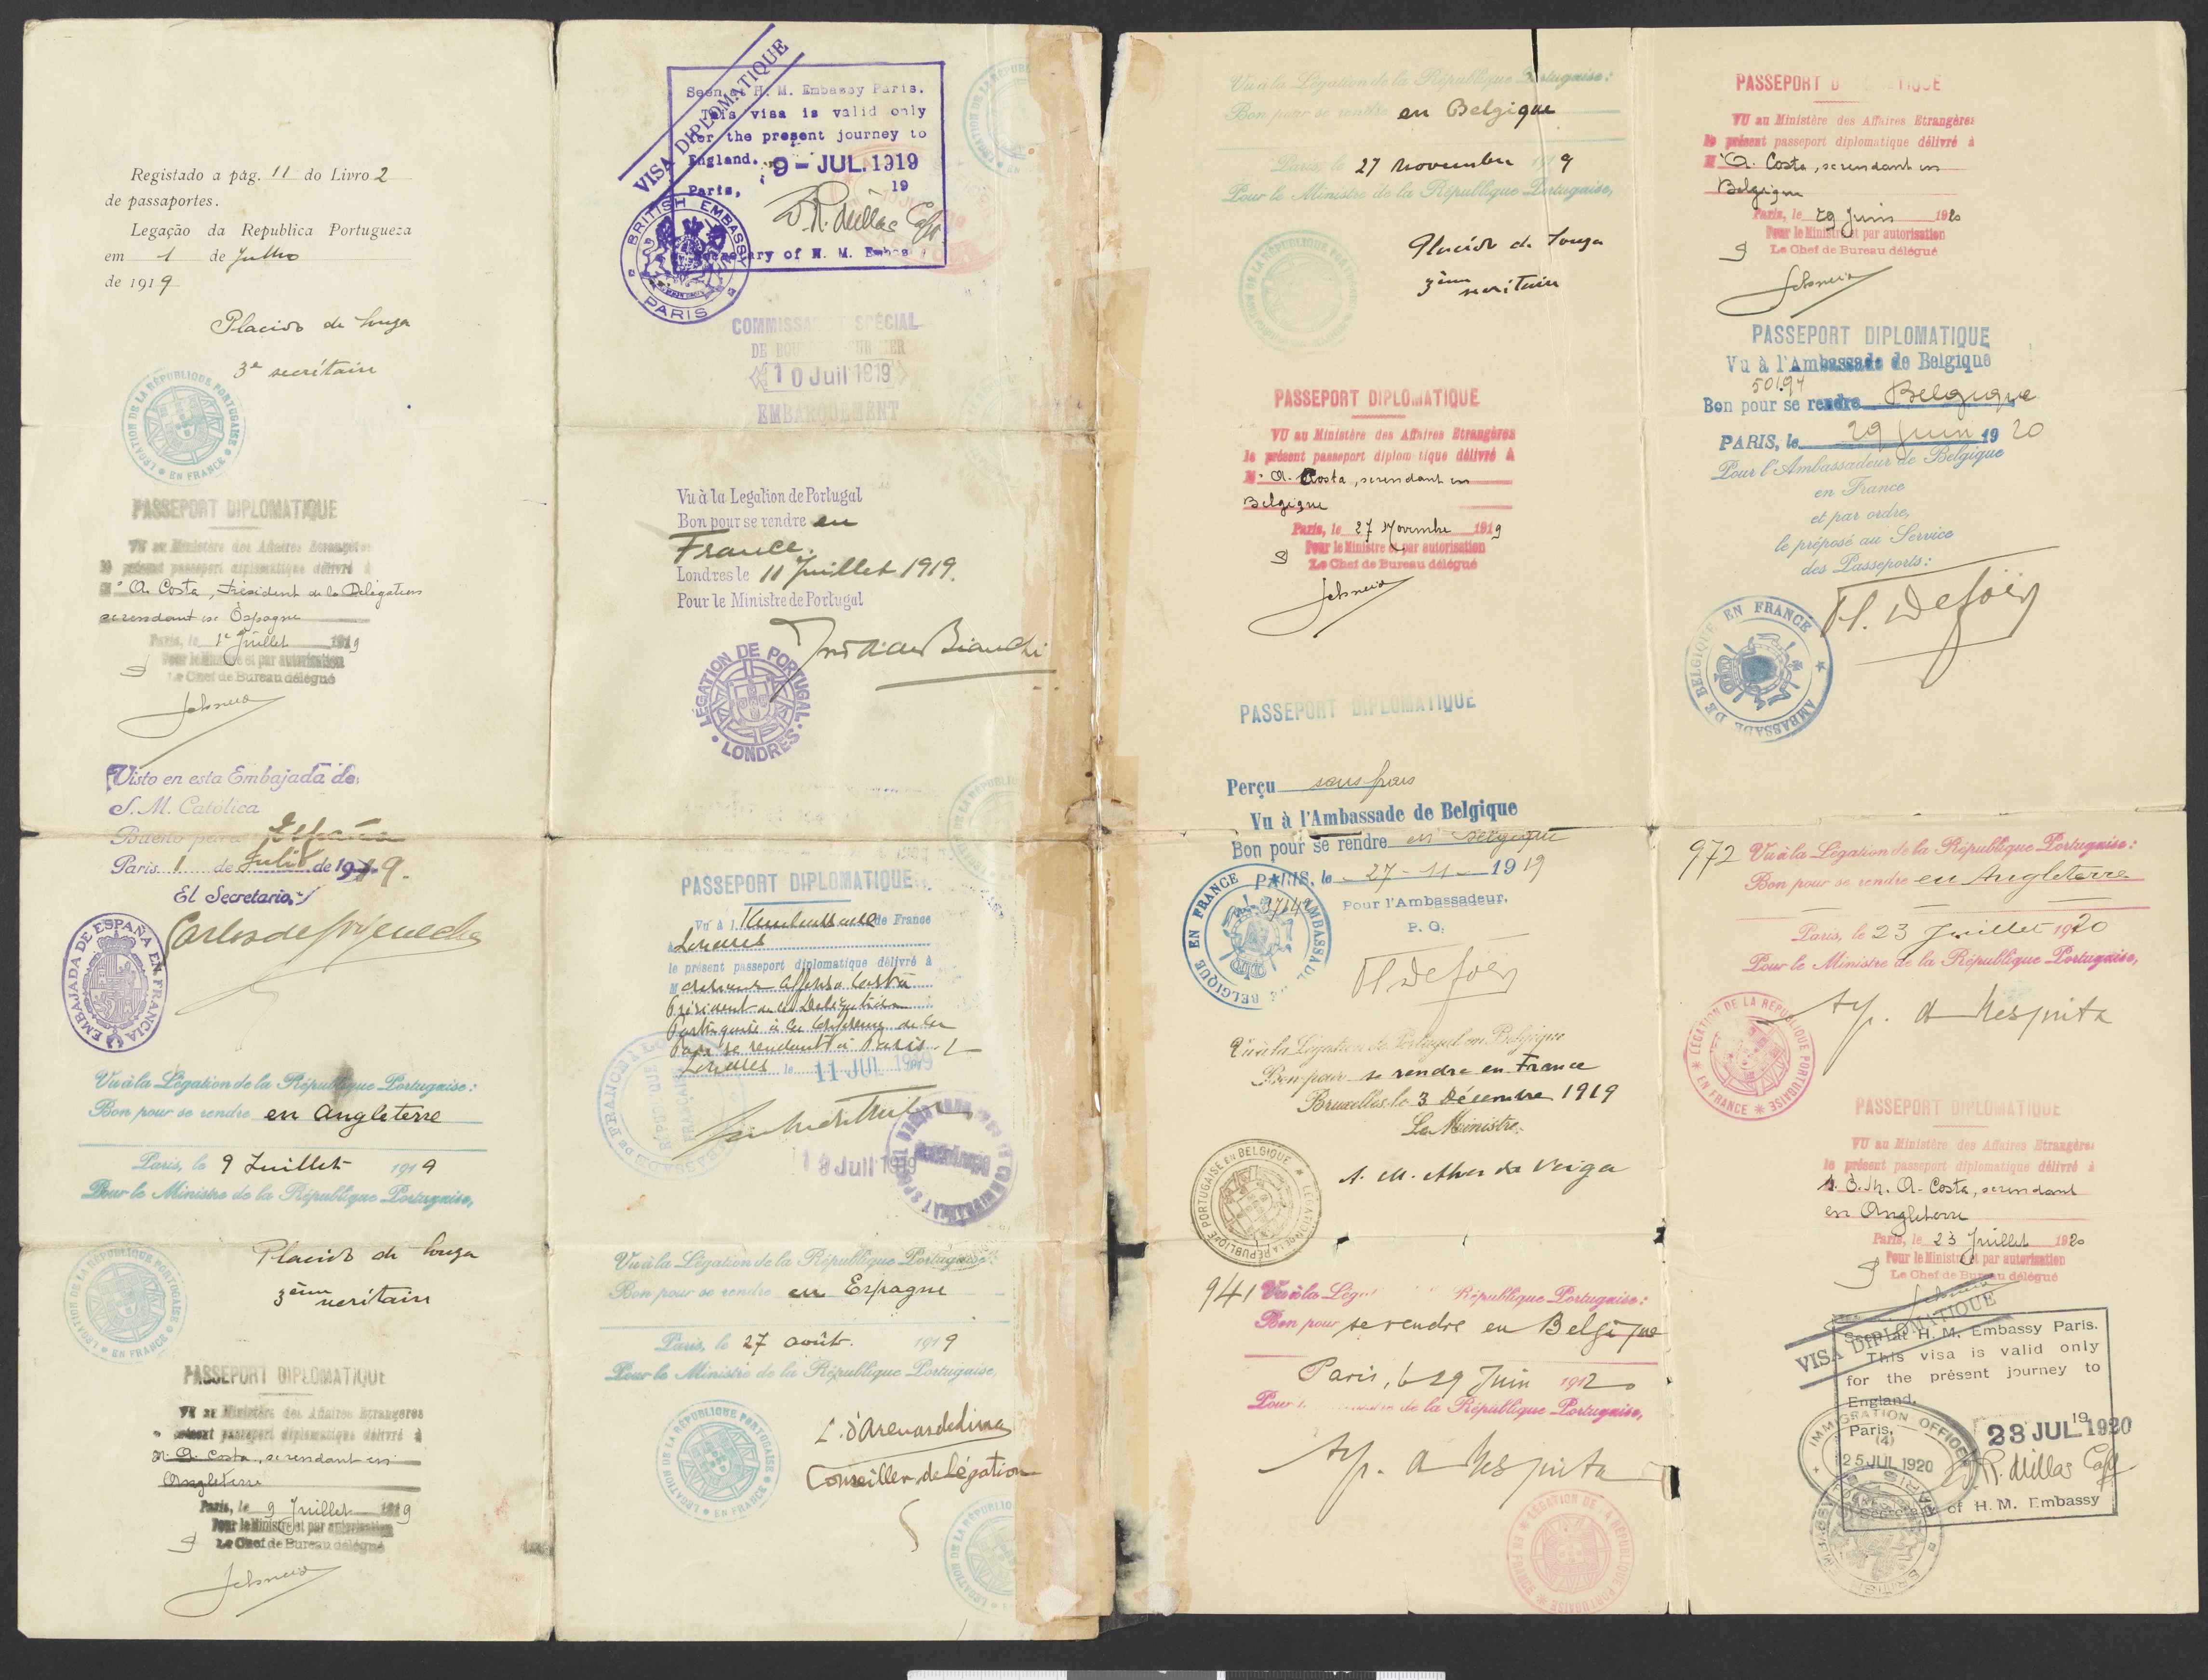 Registado a pág. 11 do Livro 2
de passaportes.
Legação da Republica Portugueza
em 1 de Julho
de 1919
Placido de Souza
3º secrétaire
LÉGATION DE LA RÉPUBLIQUE PORTUGAISE
* EN FRANCE *
PASSEPORT DIPLOMATIQUE
VU au Ministère des Affaires Etrangères
le présent passeport diplomatique délivré à
Mr A. Costa, Président de la Délégation
se rendant en Espagne
Paris, le 1er Juillet 1919
Pour le Ministre et par autorisation
Le Chef de Bureau délégué
Visto en esta Embajada de
S. M. Católica
Bueno para España
Paris 1 de Julio de 1919.
El Secretario,
EMBAJADA DE ESPAÑA EN FRANCIA
Vu à la Légation de la République Portugaise:
Bon pour se rendre en Angleterre
Paris, le 9 Juillet 1919
Pour le Ministre de la République Portugaise,
Placido de Souza
3ème secrétaire
LÉGATION DE LA RÉPUBLIQUE PORTUGAISE
* EN FRANCE *
PASSEPORT DIPLOMATIQUE
VU au Ministère des Affaires Etrangères
le présent passeport diplomatique délivré à
M. A. Costa, se rendant en
Angleterre
Paris, le 9 Juillet 1919
Pour le Ministre et par autorisation
Le Chef de Bureau délégué
VISA DIPLOMATIQUE
Seen at H. M. Embassy Paris.
This visa is valid only
for the present journey to
England.
9 - JUL. 1919
Paris, 19
Secretary of H. M. Embassy
BRITISH EMBASSY
PARIS
COMMISSARIAT SPÉCIAL
DE BOULOGNE-SUR-MER
10 Juil 1919
EMBARQUEMENT
Vu à la Legation de Portugal
Bon pour se rendre en
France.
Londres le 11 Juillet 1919.
Pour le Ministre de Portugal
LÉGATION DE PORTUGAL
LONDRES
PASSEPORT DIPLOMATIQUE
Vu à l'Ambassade de France
à Londres
le présent passeport diplomatique délivré à
Monsieur Affonso Costa
Président de la Délégation
Portugaise à la Conférence de la
Paix se rendant à Paris
Londres le 11 JUL 1919
AMBASSADE DE FRANCE À LONDRES
RÉPUBLIQUE FRANÇAISE
13 Juil 1919
Vu à la Légation de la République Portugaise:
Bon pour se rendre en Espagne
Paris, le 27 août 1919
Pour le Ministre de la République Portugaise,
Conseiller de Légation
LÉGATION DE LA RÉPUBLIQUE PORTUGAISE
* EN FRANCE *
Vu à la Légation de la République Portugaise:
Bon pour se rendre en Belgique
Paris, le 27 novembre 1919
Pour le Ministre de la République Portugaise,
Placido de Souza
3ème secrétaire
PASSEPORT DIPLOMATIQUE
VU au Ministère des Affaires Etrangères
le présent passeport diplomatique délivré à
Mr A. Costa, se rendant en
Belgique
Paris, le 27 Novembre 1919
Pour le Ministre et par autorisation
Le Chef de Bureau délégué
PASSEPORT DIPLOMATIQUE
Perçu sans frais
Vu à l'Ambassade de Belgique
Bon pour se rendre en Belgique
PARIS, le 27-11-1919
Pour l'Ambassadeur,
P. O.
AMBASSADE DE BELGIQUE EN FRANCE
Vu à la Légation de Portugal en Belgique
Bon pour se rendre en France
Bruxelles, le 3 Décembre 1919
Le Ministre,
A. M. Alves da Veiga
LÉGATION DE LA RÉPUBLIQUE PORTUGAISE EN BELGIQUE
941 Vu à la Légation de la République Portugaise:
Bon pour se rendre en Belgique
Paris, le 29 Juin 1920
Pour le Ministre de la République Portugaise,
LÉGATION DE LA RÉPUBLIQUE PORTUGAISE
* EN FRANCE *
PASSEPORT DIPLOMATIQUE
VU au Ministère des Affaires Etrangères
le présent passeport diplomatique délivré à
Mr A. Costa, se rendant en
Belgique
Paris, le 29 Juin 1920
Pour le Ministre et par autorisation
Le Chef de Bureau délégué
PASSEPORT DIPLOMATIQUE
Vu à l'Ambassade de Belgique
50194
Bon pour se rendre Belgique
PARIS, le 29 Juin 1920
Pour l'Ambassadeur de Belgique
en France
et par ordre,
le préposé au Service
des Passeports:
AMBASSADE DE BELGIQUE EN FRANCE
972 Vu à la Légation de la République Portugaise:
Bon pour se rendre en Angleterre
Paris, le 23 Juillet 1920
Pour le Ministre de la République Portugaise,
LÉGATION DE LA RÉPUBLIQUE PORTUGAISE
* EN FRANCE *
PASSEPORT DIPLOMATIQUE
VU au Ministère des Affaires Etrangères
le présent passeport diplomatique délivré à
A. Costa, se rendant
en Angleterre
Paris, le 23 Juillet 1920
Pour le Ministre et par autorisation
Le Chef de Bureau délégué
VISA DIPLOMATIQUE
Seen at H. M. Embassy Paris.
This visa is valid only
for the present journey to
England.
Paris, 19
23 JUL 1920
Secretary of H. M. Embassy
IMMIGRATION OFFICER
(4)
25 JUL 1920
BRITISH EMBASSY
PARIS